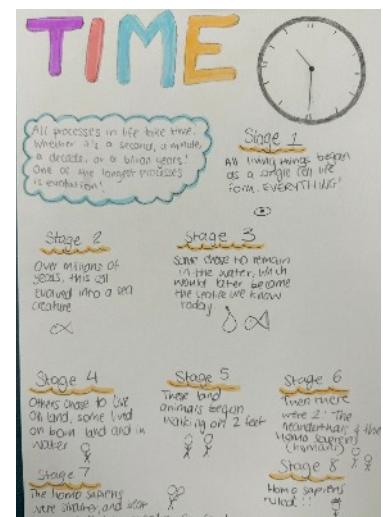 TIME
All processes in life take time.
Whether it's a second, a minute,
a decade, or a billion years!
One of the longest processes
is evolution!
Stage 1
All living things began
as a single cell life
form. EVERYTHING!
Stage 2
Over millions of
years, this cell
evolved into a sea
creature
Stage 3
Some chose to remain
in the water, which
would later become
the we know
today
Stage 4
Others chose to live
on land, some lived
on both land and in
water
Stage 5
These land
animals began
walking on 2 feet
Stage 6
Then there
were 2: The
neanderthals & the
Homo sapiens
(humans)
Stage 7
The Homo sapiens
were smarter, and
Stage 8
Homo sapiens
ruled!!